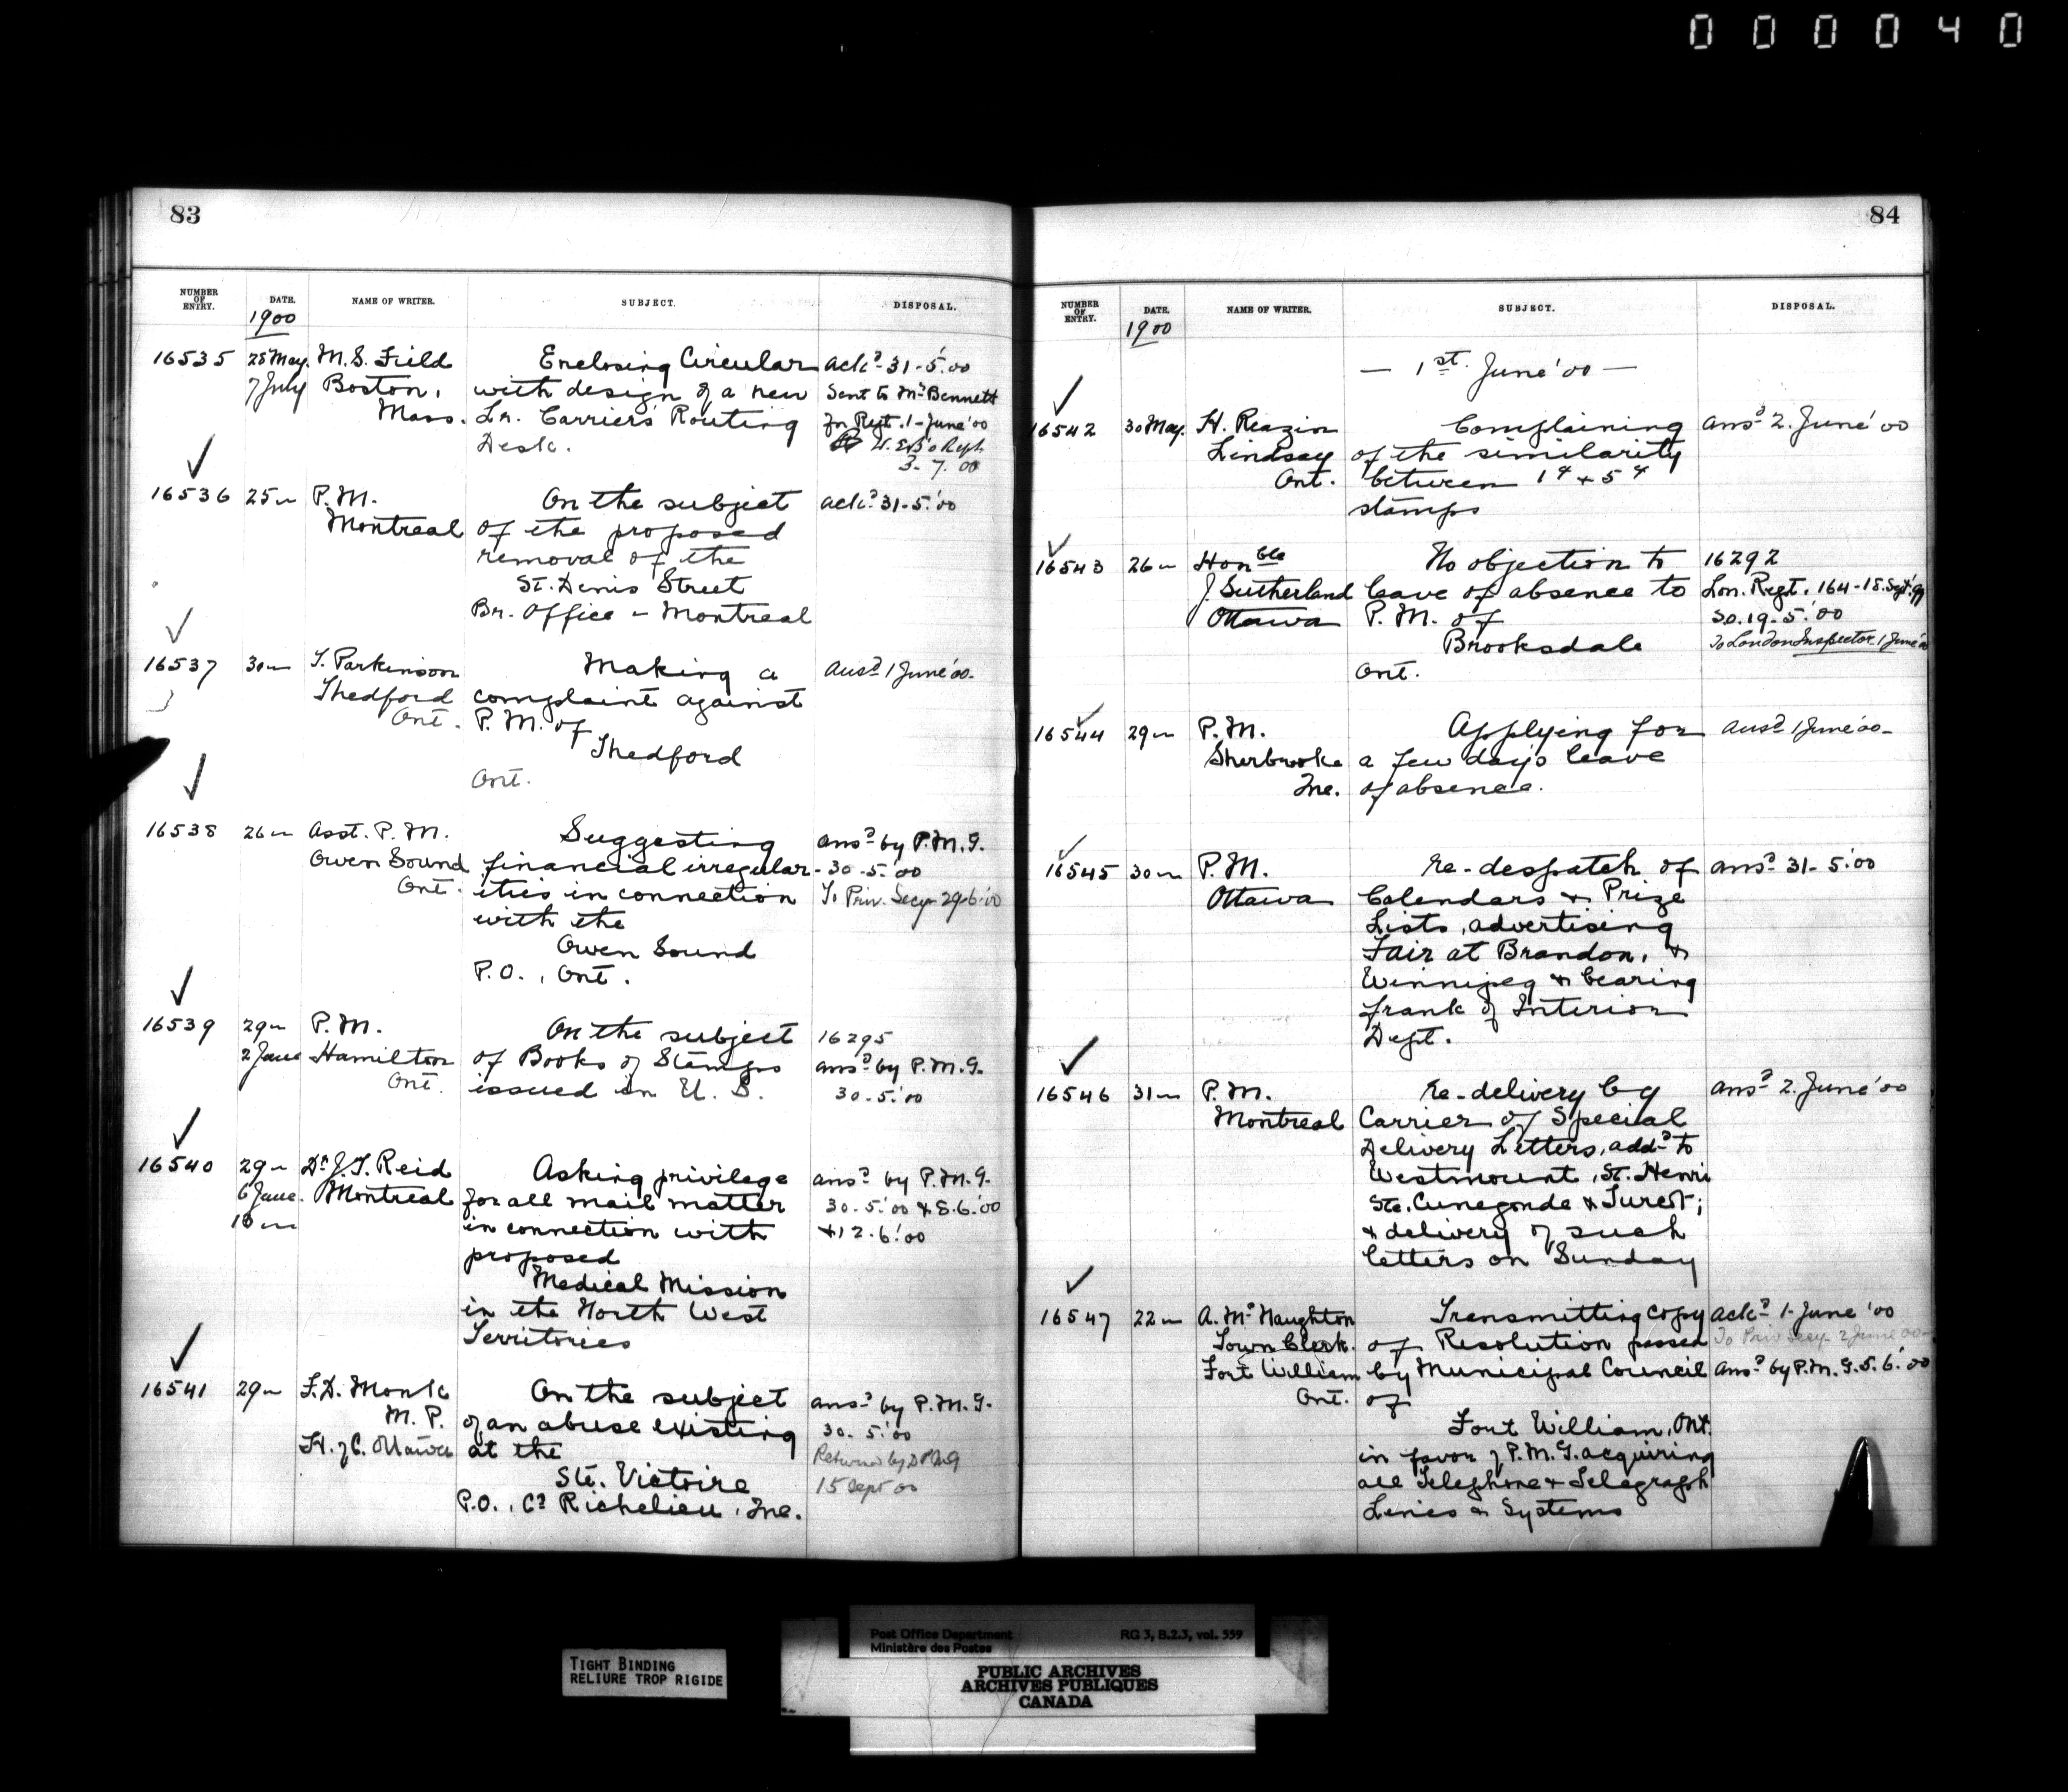 000040
83
NUMBER OF ENTRY. DATE. NAME OF WRITER. SUBJECT. DISPOSAL.
1900
16535 28 May. M.S. Field Enclosing Circular ackd 31-5.'00
7 July Boston, with design of a new Sent to Mr Bennett
Mass. Lr. Carrier's Routing for Rept. 1-June '00
Desk. Rept.
3.7.00
16536 25 " P.M. On the subject ackd 31-5.'00
Montreal of the proposed
removal of the
St. Denis Street
Br. Office - Montreal
16537 30 " T. Parkinson Making a ansd 1 June '00-
Thedford complaint against
Ont. P.M. of
Thedford
Ont.
16538 26 " Asst. P.M. Suggesting ansd by P.M.G.
Owen Sound financial irregular- 30-5.'00
Ont. ities in connection To Priv. Secy 29-6.'00
with the
Owen Sound
P.O., Ont.
16539 29 " P.M. On the subject 16295
2 June Hamilton of Books of Stamps ansd by P.M.G.
Ont. issued in U.S. 30.5.'00
16540 29 " Dr J.T. Reid Asking privilege ansd by P.M.G.
6 June. Montreal for all mail matter 30-5.'00 & 8.6.'00
10 " in connection with & 12.6.'00
proposed
Medical Mission
in the North West
Territories
16541 29 " F.D. Monk On the subject ansd by P.M.G.
M.P. of an abuse existing 30.5.'00
H. of C. Ottawa at the Returned by
Ste. Victoire 15 Sept 00
P.O., Co Richelieu, Que.
84
NUMBER OF ENTRY. DATE. NAME OF WRITER. SUBJECT. DISPOSAL.
1900
— 1st. June '00 —
16542 30 May. H. Reazin Complaining ansd 2. June '00
Lindsay of the similarity
Ont. between 1¢ & 5¢
stamps
16543 26 " Honble No objection to 16292
J. Sutherland leave of absence to Lon. Rept. 164-18. Sept. '99
Ottawa P.M. of So. 19.5.'00
Brooksdale To London Inspector 1 June '00
Ont.
16544 29 " P.M. Applying for ansd 1 June '00-
Sherbrooke a few days leave
Que. of absence.
16545 30 " P.M. Re-despatch of ansd 31-5.'00
Ottawa Calendars & Prize
Lists, advertising
Fair at Brandon, &
Winnipeg & bearing
frank of Interior
Dept.
16546 31 " P.M. Re-delivery by ansd 2. June '00
Montreal Carrier of Special
Delivery Letters, addd to
Westmount, St. Henri
Ste. Cunegonde & Turcot;
& delivery of such
letters on Sunday
16547 22 " A. McNaughton Transmitting copy ackd 1-June '00
Town Clerk. of Resolution passed To Priv Secy 2 June 00-
Fort William by Municipal Council ansd by P.M.G. 5.6.'00
Ont. of
Fort William, Ont.
in favor of P.M.G. acquiring
all Telephone & Telegraph
Lines & Systems
Post Office Department RG 3, B.2.3, vol. 559
Ministère des Postes
TIGHT BINDING
RELIURE TROP RIGIDE
PUBLIC ARCHIVES
ARCHIVES PUBLIQUES
CANADA